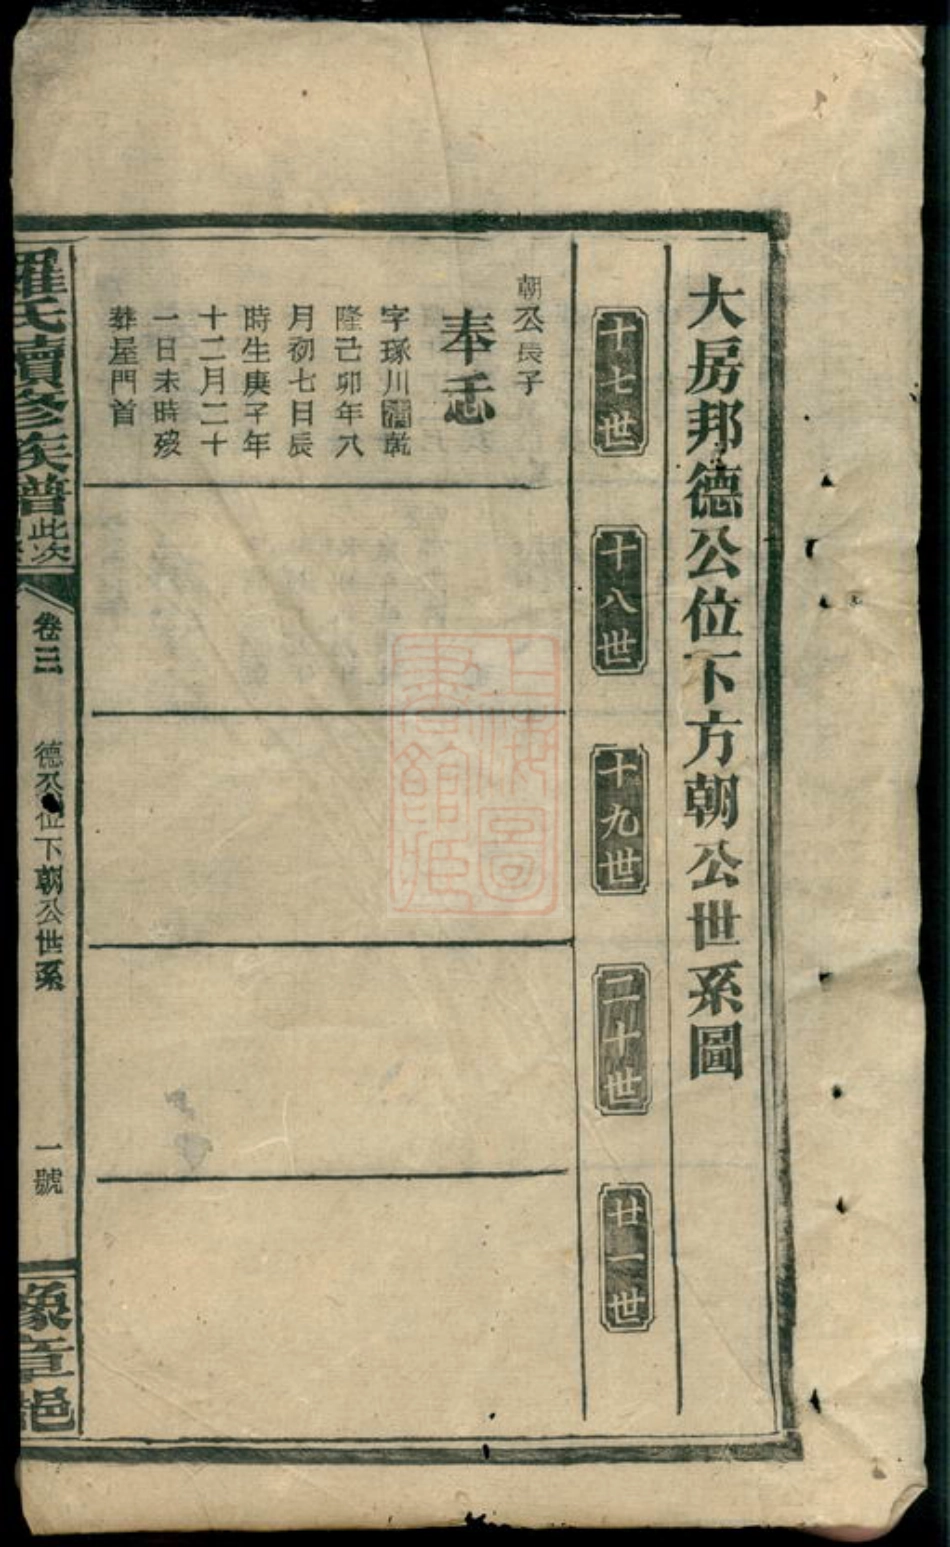 大房邦德公位下方朝公世系圖
十七世
十八世
十九世
二十世
廿一世
朝公長子
奉忎
字琢川清乾
隆己卯年八
月初七日辰
時生庚子年
十二月二十
一日未時歿
葬屋門首
羅氏續修族譜
此次
卷三
德公位下朝公世系
一號
豫章
上海圖書館藏